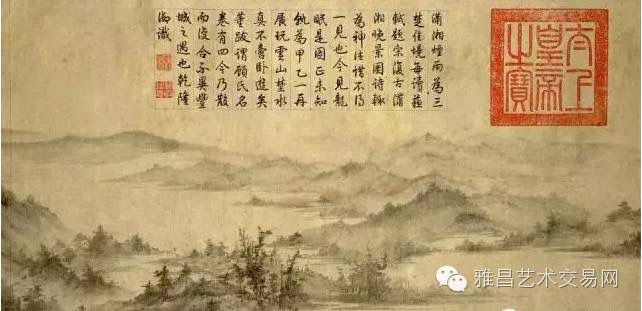 太上
皇帝
之寶
瀟湘煙雨為三
楚佳境每讀蘇
軾題宋復古瀟
湘晚景圖詩輒
為神往惜不得
一見也今見龍
眠是圖正未知
孰為甲乙一再
展玩雲山楚水
真不啻卧遊矣
董跋謂顧氏名
卷有四今乃散
而復合不異豐
城之遇也乾隆
御識
雅昌艺术交易网